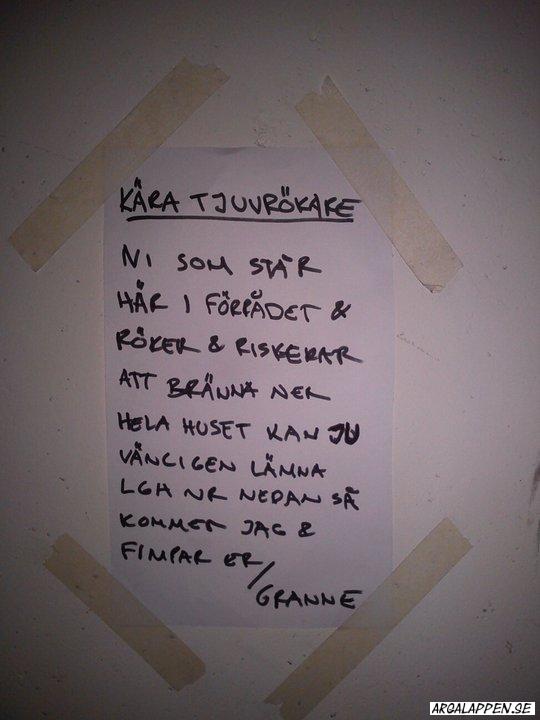 KÄRA TJUVRÖKARE
NI SOM STÅR
HÄR I FÖRRÅDET &
RÖKER & RISKERAR
ATT BRÄNNA NER
HELA HUSET KAN JU
VÄNLIGEN LÄMNA
LGH NR NEDAN SÅ
KOMMER JAG &
FIMPAR ER
/GRANNE
ARGALAPPEN.SE